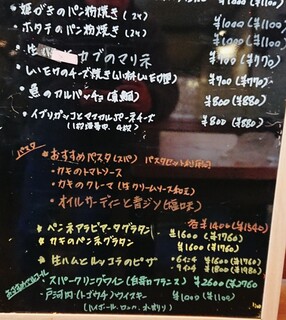 ・姫がきのパン粉焼き(2ヶ) ¥1000(¥1100)
・ホタテのパン粉焼き(2ヶ) ¥1000(¥1100)
・生 カブのマリネ ¥700(¥770)
のチーズ焼き ¥700(¥770)
・魚のカルパッチョ(真鯛) ¥800(¥880)
・イブリガッコとマスカルポーネチーズ ¥800(¥880)
パスタ
・おすすめパスタ(スパ) パスタセット
・カキのトマトソース
・カキのクレーマ(生クリームソース
・オイルサーディンと青ジソ(塩味)
各¥1400(¥1540)
・ペンネアラビアータグラタン ¥1600(¥1760)
・カキのペンネグラタン ¥1600(¥1760)
・生ハムとルッコラのピザ ・6インチ ¥1600(¥1760)
・9インチ ¥1800(¥1980)
おすすめアルコール
・スパークリングワイン(白辛口フランス) ¥2600(¥2860)
・戸河内(トゴウチ)ウイスキー ¥1000(¥1100)
(ハイボール、ロック、水割り)